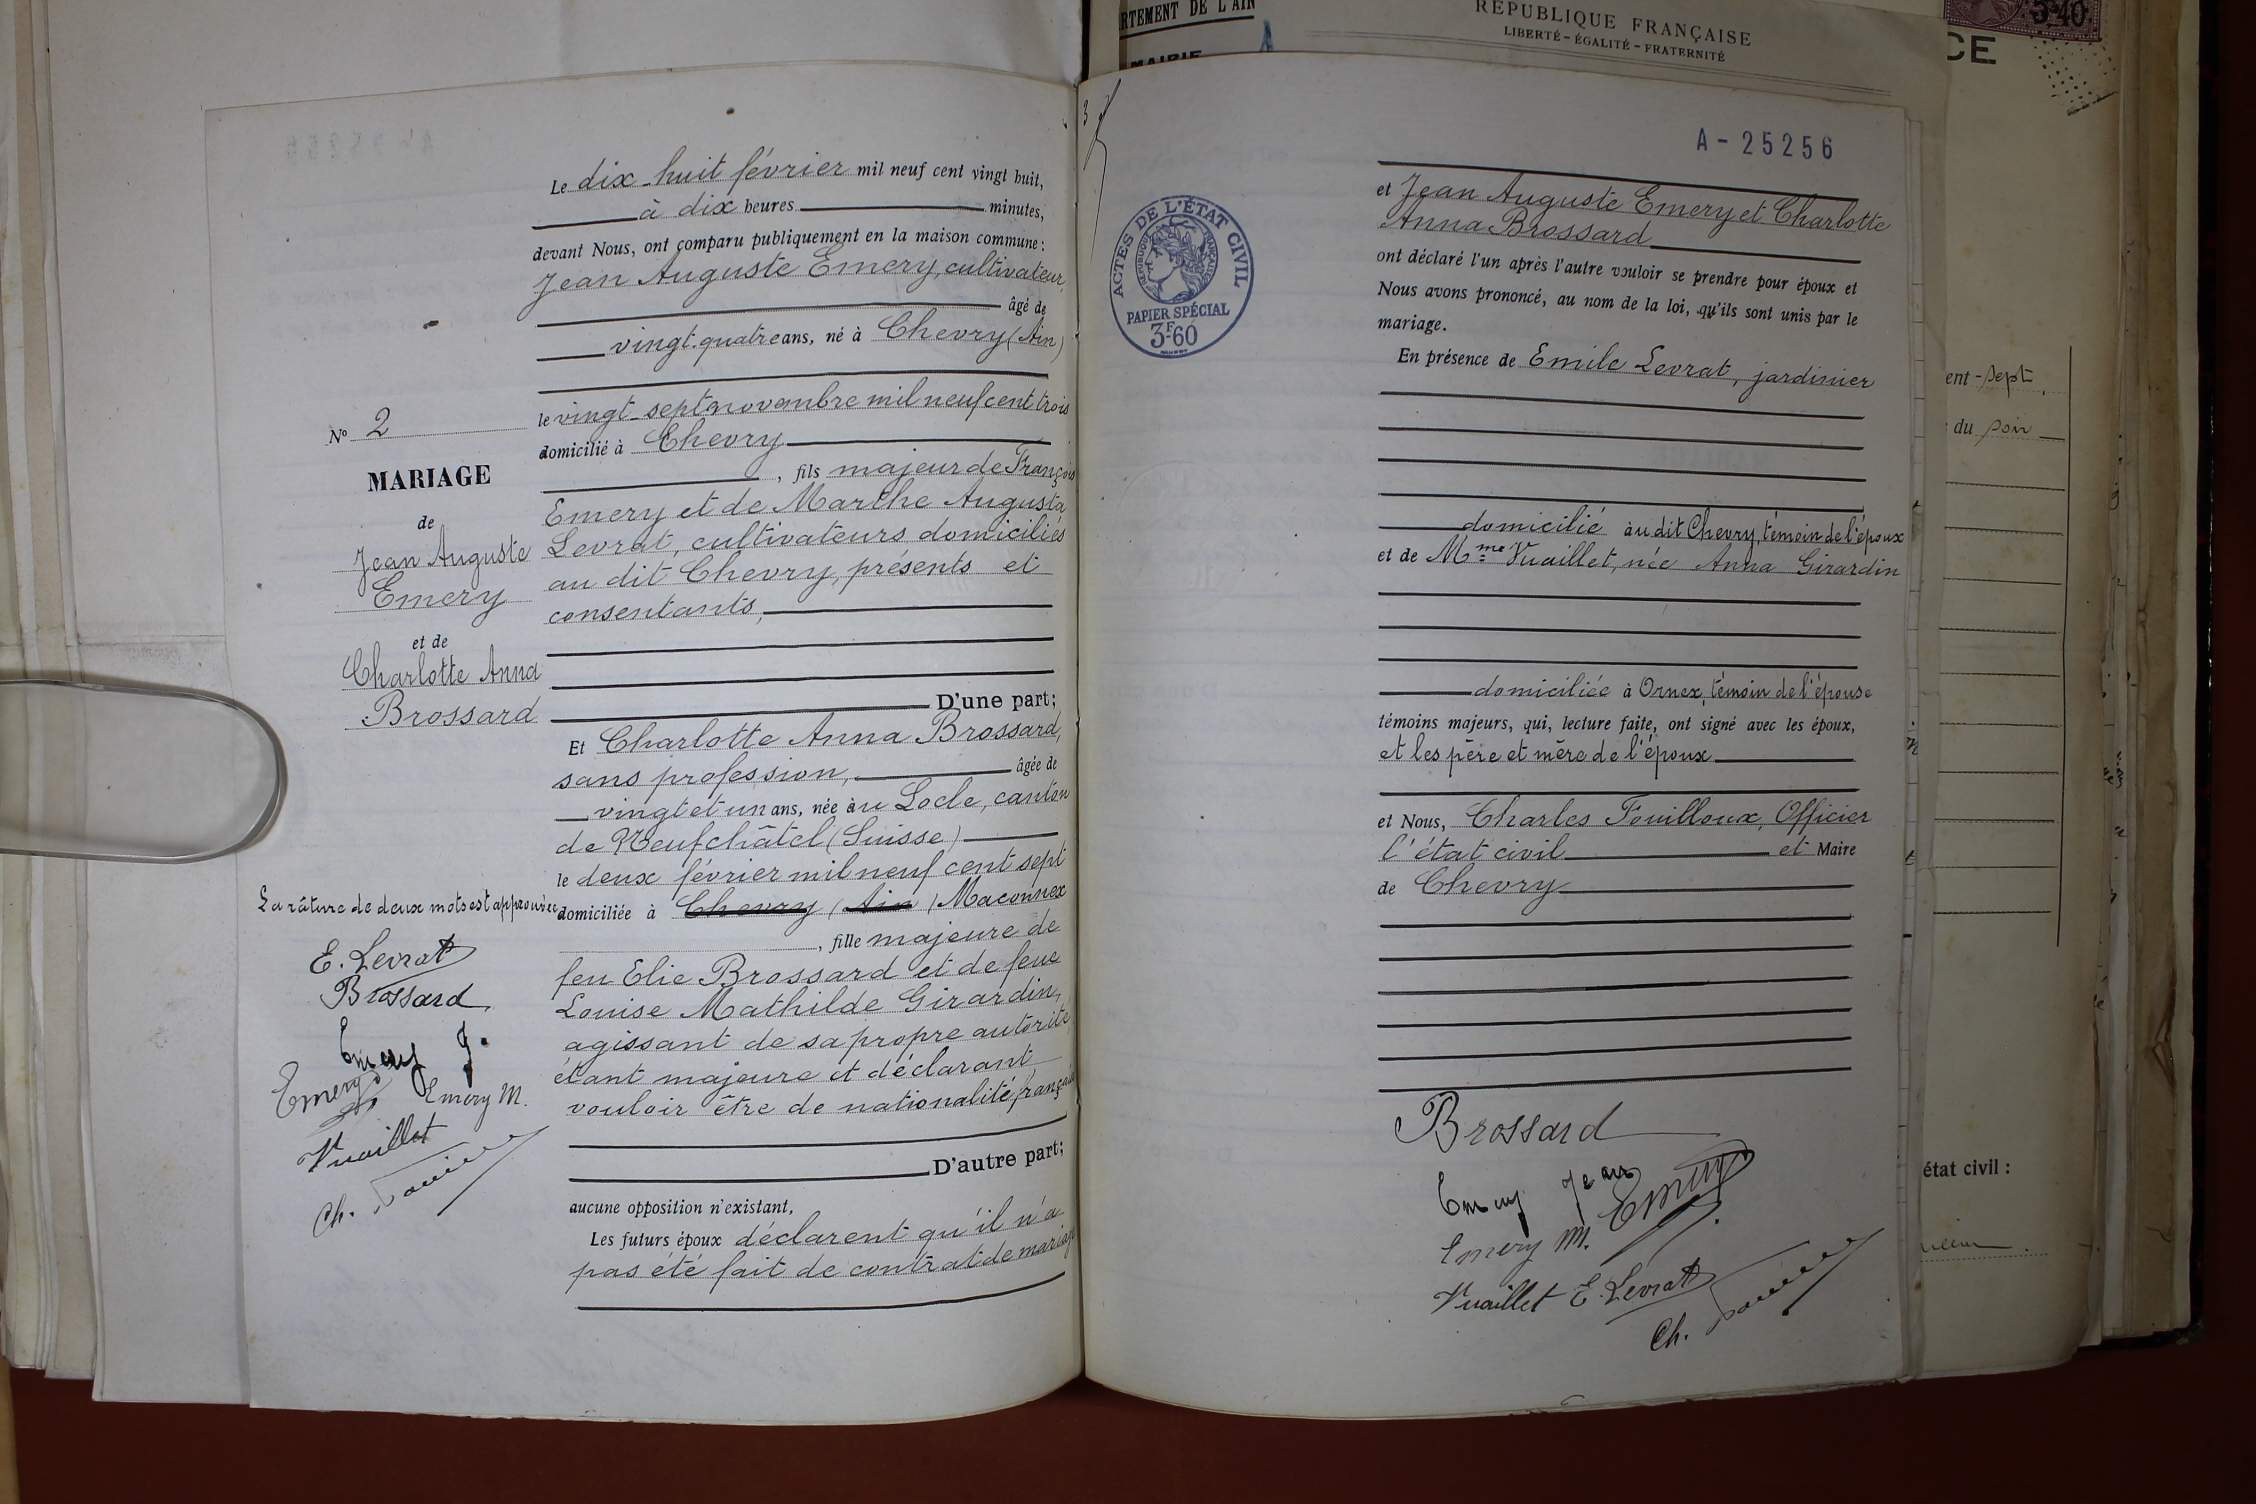 Le dix-huit février mil neuf cent vingt huit,
à dix heures minutes,
devant Nous, ont comparu publiquement en la maison commune :
Jean Auguste Emery, cultivateur,
âgé de
vingt-quatre ans, né à Chevry (Ain)
le vingt-sept novembre mil neuf cent trois
domicilié à Chevry
, fils majeur de François
Emery et de Marthe Augusta
Levrat, cultivateurs domiciliés
au dit Chevry, présents et
consentants,
D'une part;
Et Charlotte Anna Brossard,
sans profession, âgée de
vingt et un ans, née au Locle, canton
de Neufchâtel (Suisse)
le deux février mil neuf cent sept
domiciliée à Chevry (Ain) Maconnex
, fille majeure de
feu Elie Brossard et de feue
Louise Mathilde Girardin,
agissant de sa propre autorité
étant majeure et déclarant
vouloir être de nationalité française
D'autre part;
aucune opposition n'existant,
Les futurs époux déclarent qu'il n'a
pas été fait de contrat de mariage
N° 2
MARIAGE
de
Jean Auguste
Emery
et de
Charlotte Anna
Brossard
La râture de deux mots est approuvée
E. Levrat
Brossard
Emery J.
Emery
Emery M.
Vuaillet
Ch.
3
A - 25256
ACTES DE L'ÉTAT CIVIL
RÉPUBLIQUE FRANÇAISE
PAPIER SPÉCIAL
3F60
et Jean Auguste Emery et Charlotte
Anna Brossard
ont déclaré l'un après l'autre vouloir se prendre pour époux et
Nous avons prononcé, au nom de la loi, qu'ils sont unis par le
mariage.
En présence de Emile Levrat, jardinier
domicilié au dit Chevry, témoin de l'époux
et de Mme Vuaillet, née Anna Girardin
domiciliée à Ornex, témoin de l'épouse
témoins majeurs, qui, lecture faite, ont signé avec les époux,
et les père et mère de l'époux
et Nous, Charles Fouilloux, Officier
l'état civil et Maire
de Chevry
Brossard
Emery Jean
Emery
Emery M.
Vuaillet E. Levrat
Ch.
RTEMENT DE L'AIN
MAIRIE
RÉPUBLIQUE FRANÇAISE
LIBERTÉ - ÉGALITÉ - FRATERNITÉ
3F40
CE
ent-sept
du soir
état civil :